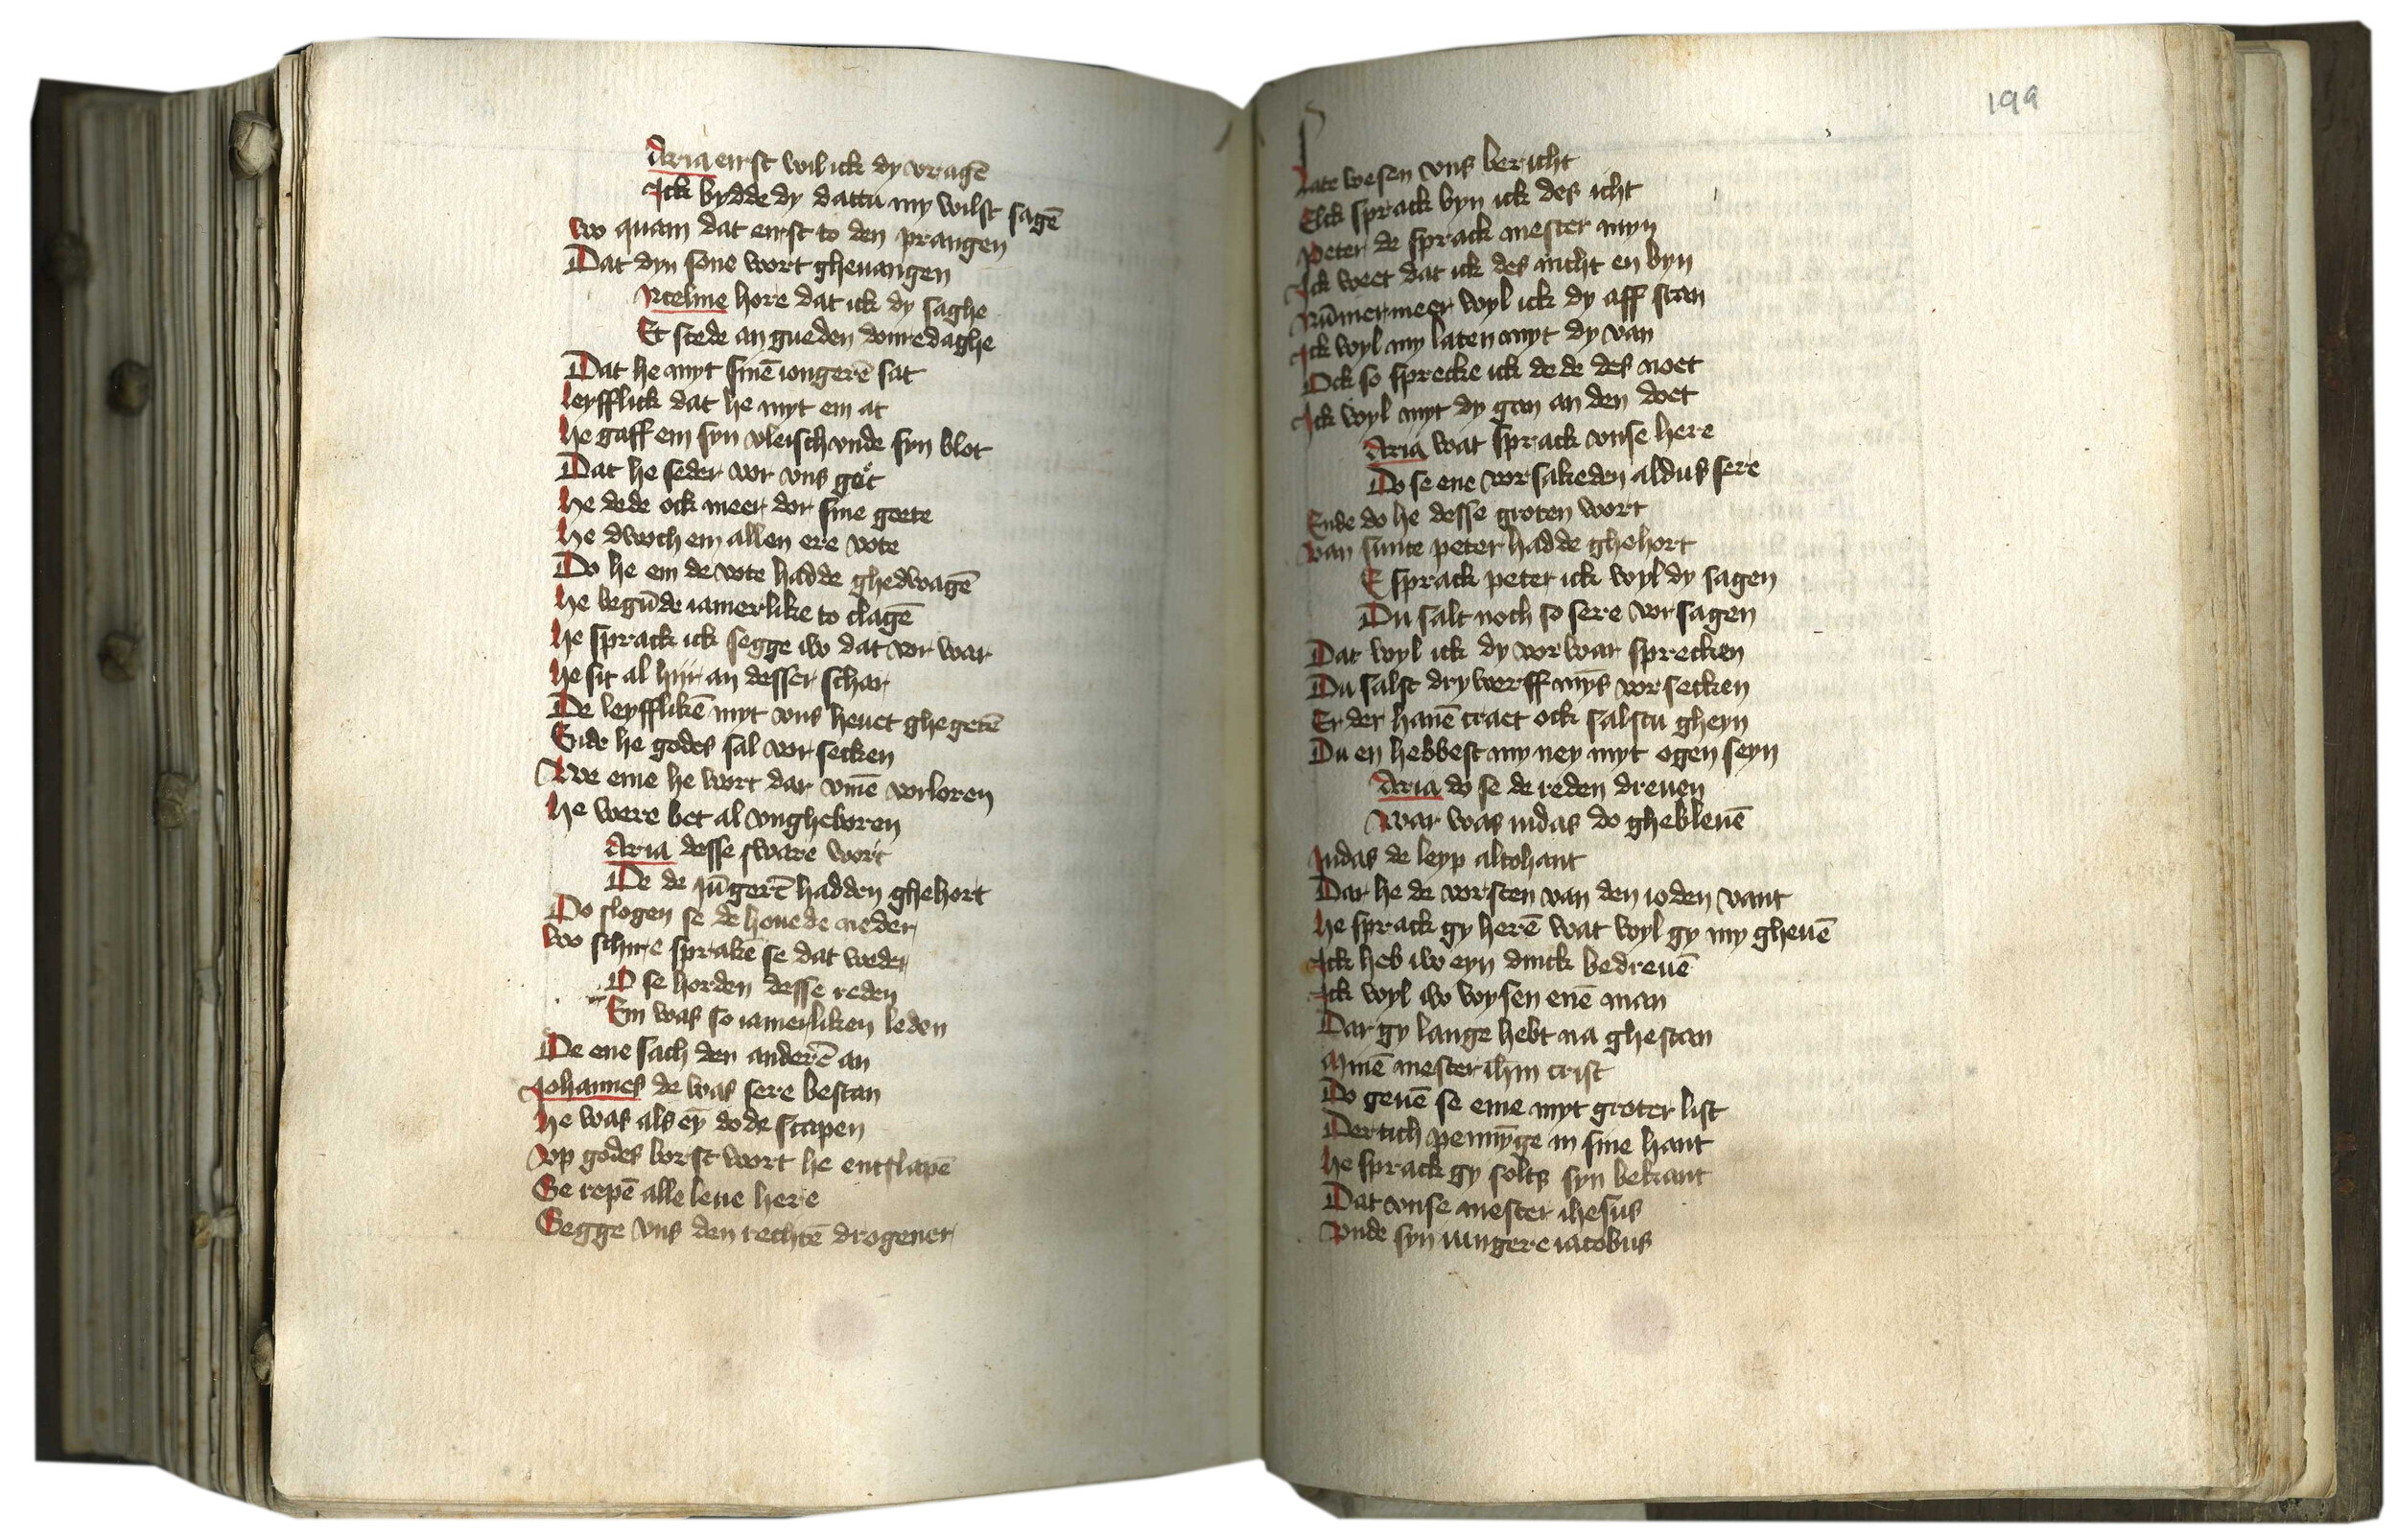 Aria eirst wil ick dy vragē
Ick bydde dy dattu my wilst sagē
wo quam dat eirst to den prangen
Dat dyn sone wort gheuangen
Ncelme hore dat ick dy saghe
Et stede an gueden donredaghe
Dat he myt sinē iongerē sat
leyfflick dat he myt em at
he gaff em syn vleisch vnde syn blot
Dat he seder vor vns goͤt
he dede ock meer dor sine goete
he dwoch em allen ere vote
Do he em de vote hadde ghedwagē
he begūde iamerlike to clagē
he sprack ick segge iw dat vor war
he sit al hiir an desser schar
De leyfflikē myt vns heuet ghegetē
Ende he godes sal vor secken
We eme he wort dar vmē vorloren
he were bet al vngheboren
Aria desse sware wort
De de jūgerē hadden ghehort
Do slogen se de houede neder
wo schire sprakē se dat weder
O se horden desse reden
Em was so iamerliken leden
De ene sach den anderē an
Johannes de was sere bestan
he was als eȳ dode scapen
vp godes borst wort he entslapē
Se repē alle leue here
Segge vns den rechtē drogener
late wesen vns bericht
Elck sprack byn ick des icht
Peter de sprack mester myn
Ick weet dat ick des nicht en byn
Nūmermeer wyl ick dy aff stan
Ick wyl my laten myt dy van
Ock so sprecke ick dede des noet
Ick wyl myt dy gan an den doet
Aria wat sprack vnse here
Do se ene vorsakeden aldus sere
Ende do he desse groten wort
van sunte peter hadde ghehort
E sprack peter ick wyl dy sagen
Du salt noch so sere vorsagen
Dat wyl ick dy vorwar sprecken
Du salst drywerff mȳs vorsecken
Er der hanē craet ock salstu gheyn
Du en hebbest my ney myt ogen seyn
Aria do se de reden dreuen
war was iudas do ghebleuē
Judas de leyp altohant
Dar he de vorsten van den ioden vant
he sprack gy herē wat wyl gy my gheuē
Ick heb iw eyn dinck bedreuē
Ick wyl iw wysen enē man
Dar gy lange hebt na ghestan
Minē mester ihm̄ crist
Do geuē se eme myt groter list
Dertich pennȳge in sine hant
he sprack gy solts syn bekant
Dat vnse mester ihesus
Vnde syn iungere iacobus
199